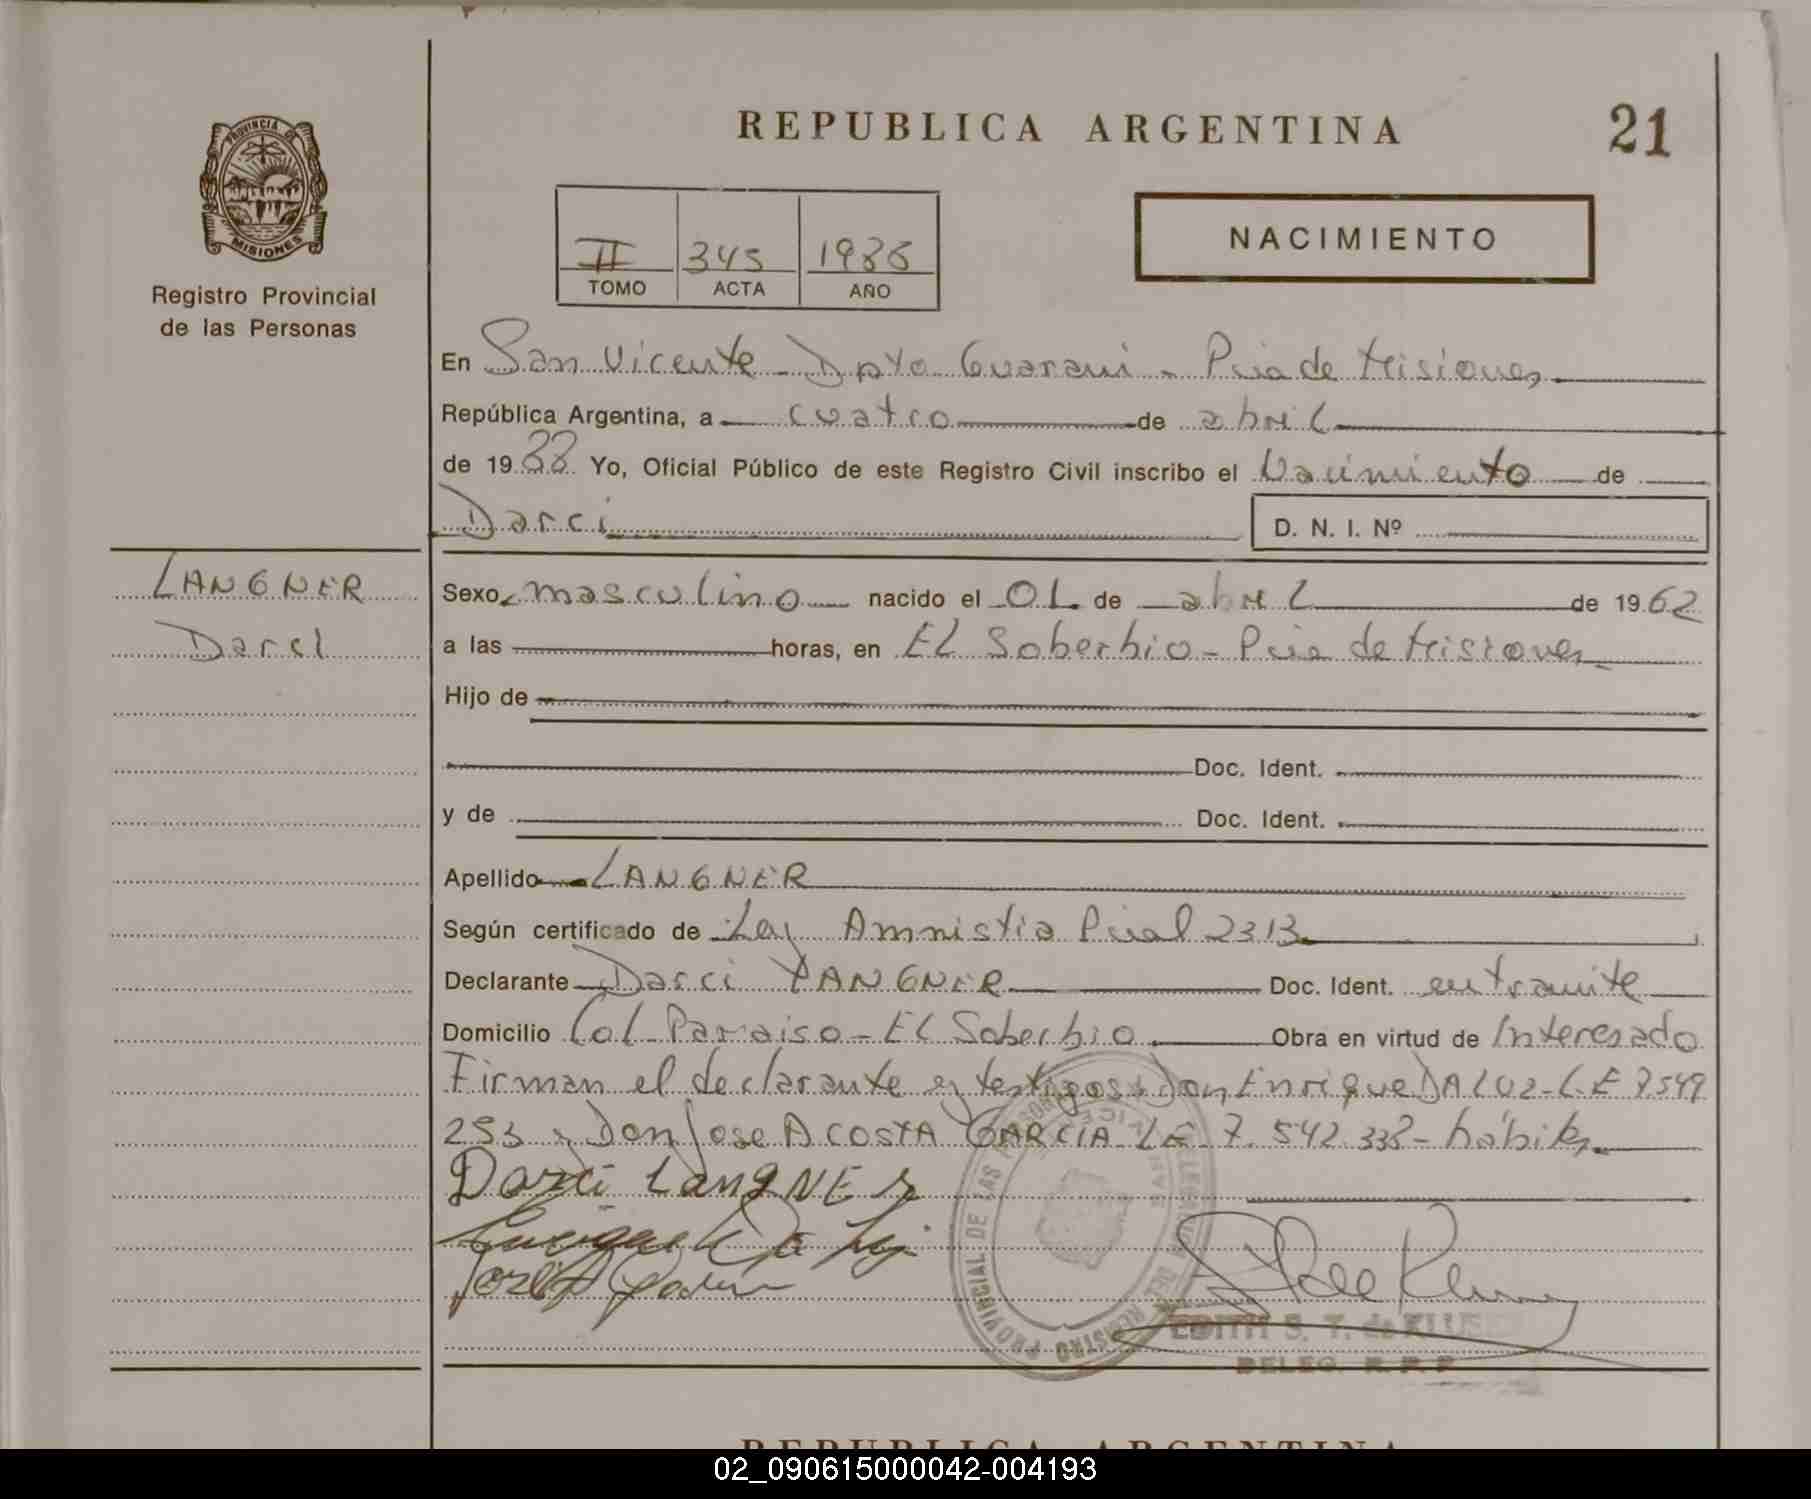 REPUBLICA ARGENTINA
21
PROVINCIA DE
MISIONES
Registro Provincial
de las Personas
II 345 1988
TOMO ACTA AÑO
NACIMIENTO
En San Vicente - Dpto Guarani - Pcia de Misiones
República Argentina, a cuatro de abril
de 1988 Yo, Oficial Público de este Registro Civil inscribo el Nacimiento de
Darci D. N. I. Nº
LANGNER
Darci
Sexo masculino nacido el 01 de abril de 1962
a las horas, en EL Soberbio - Pcia de Misiones
Hijo de
Doc. Ident.
y de Doc. Ident.
Apellido LANGNER
Según certificado de Ley Amnistia Pcial 2313
Declarante Darci LANGNER Doc. Ident. en tramite
Domicilio Col. Paraiso - EL Soberbio Obra en virtud de Interesado
Firman el declarante y testigos: Don Enrique DA LUZ - L.E 7.549
253 y Don Jose ACOSTA GARCIA LE 7.542.338 - hábiles
Darci LangNER
EDITH S. T. de KLUSE
DELEG. R. P. P.
REPUBLICA ARGENTINA
02_090615000042-004193